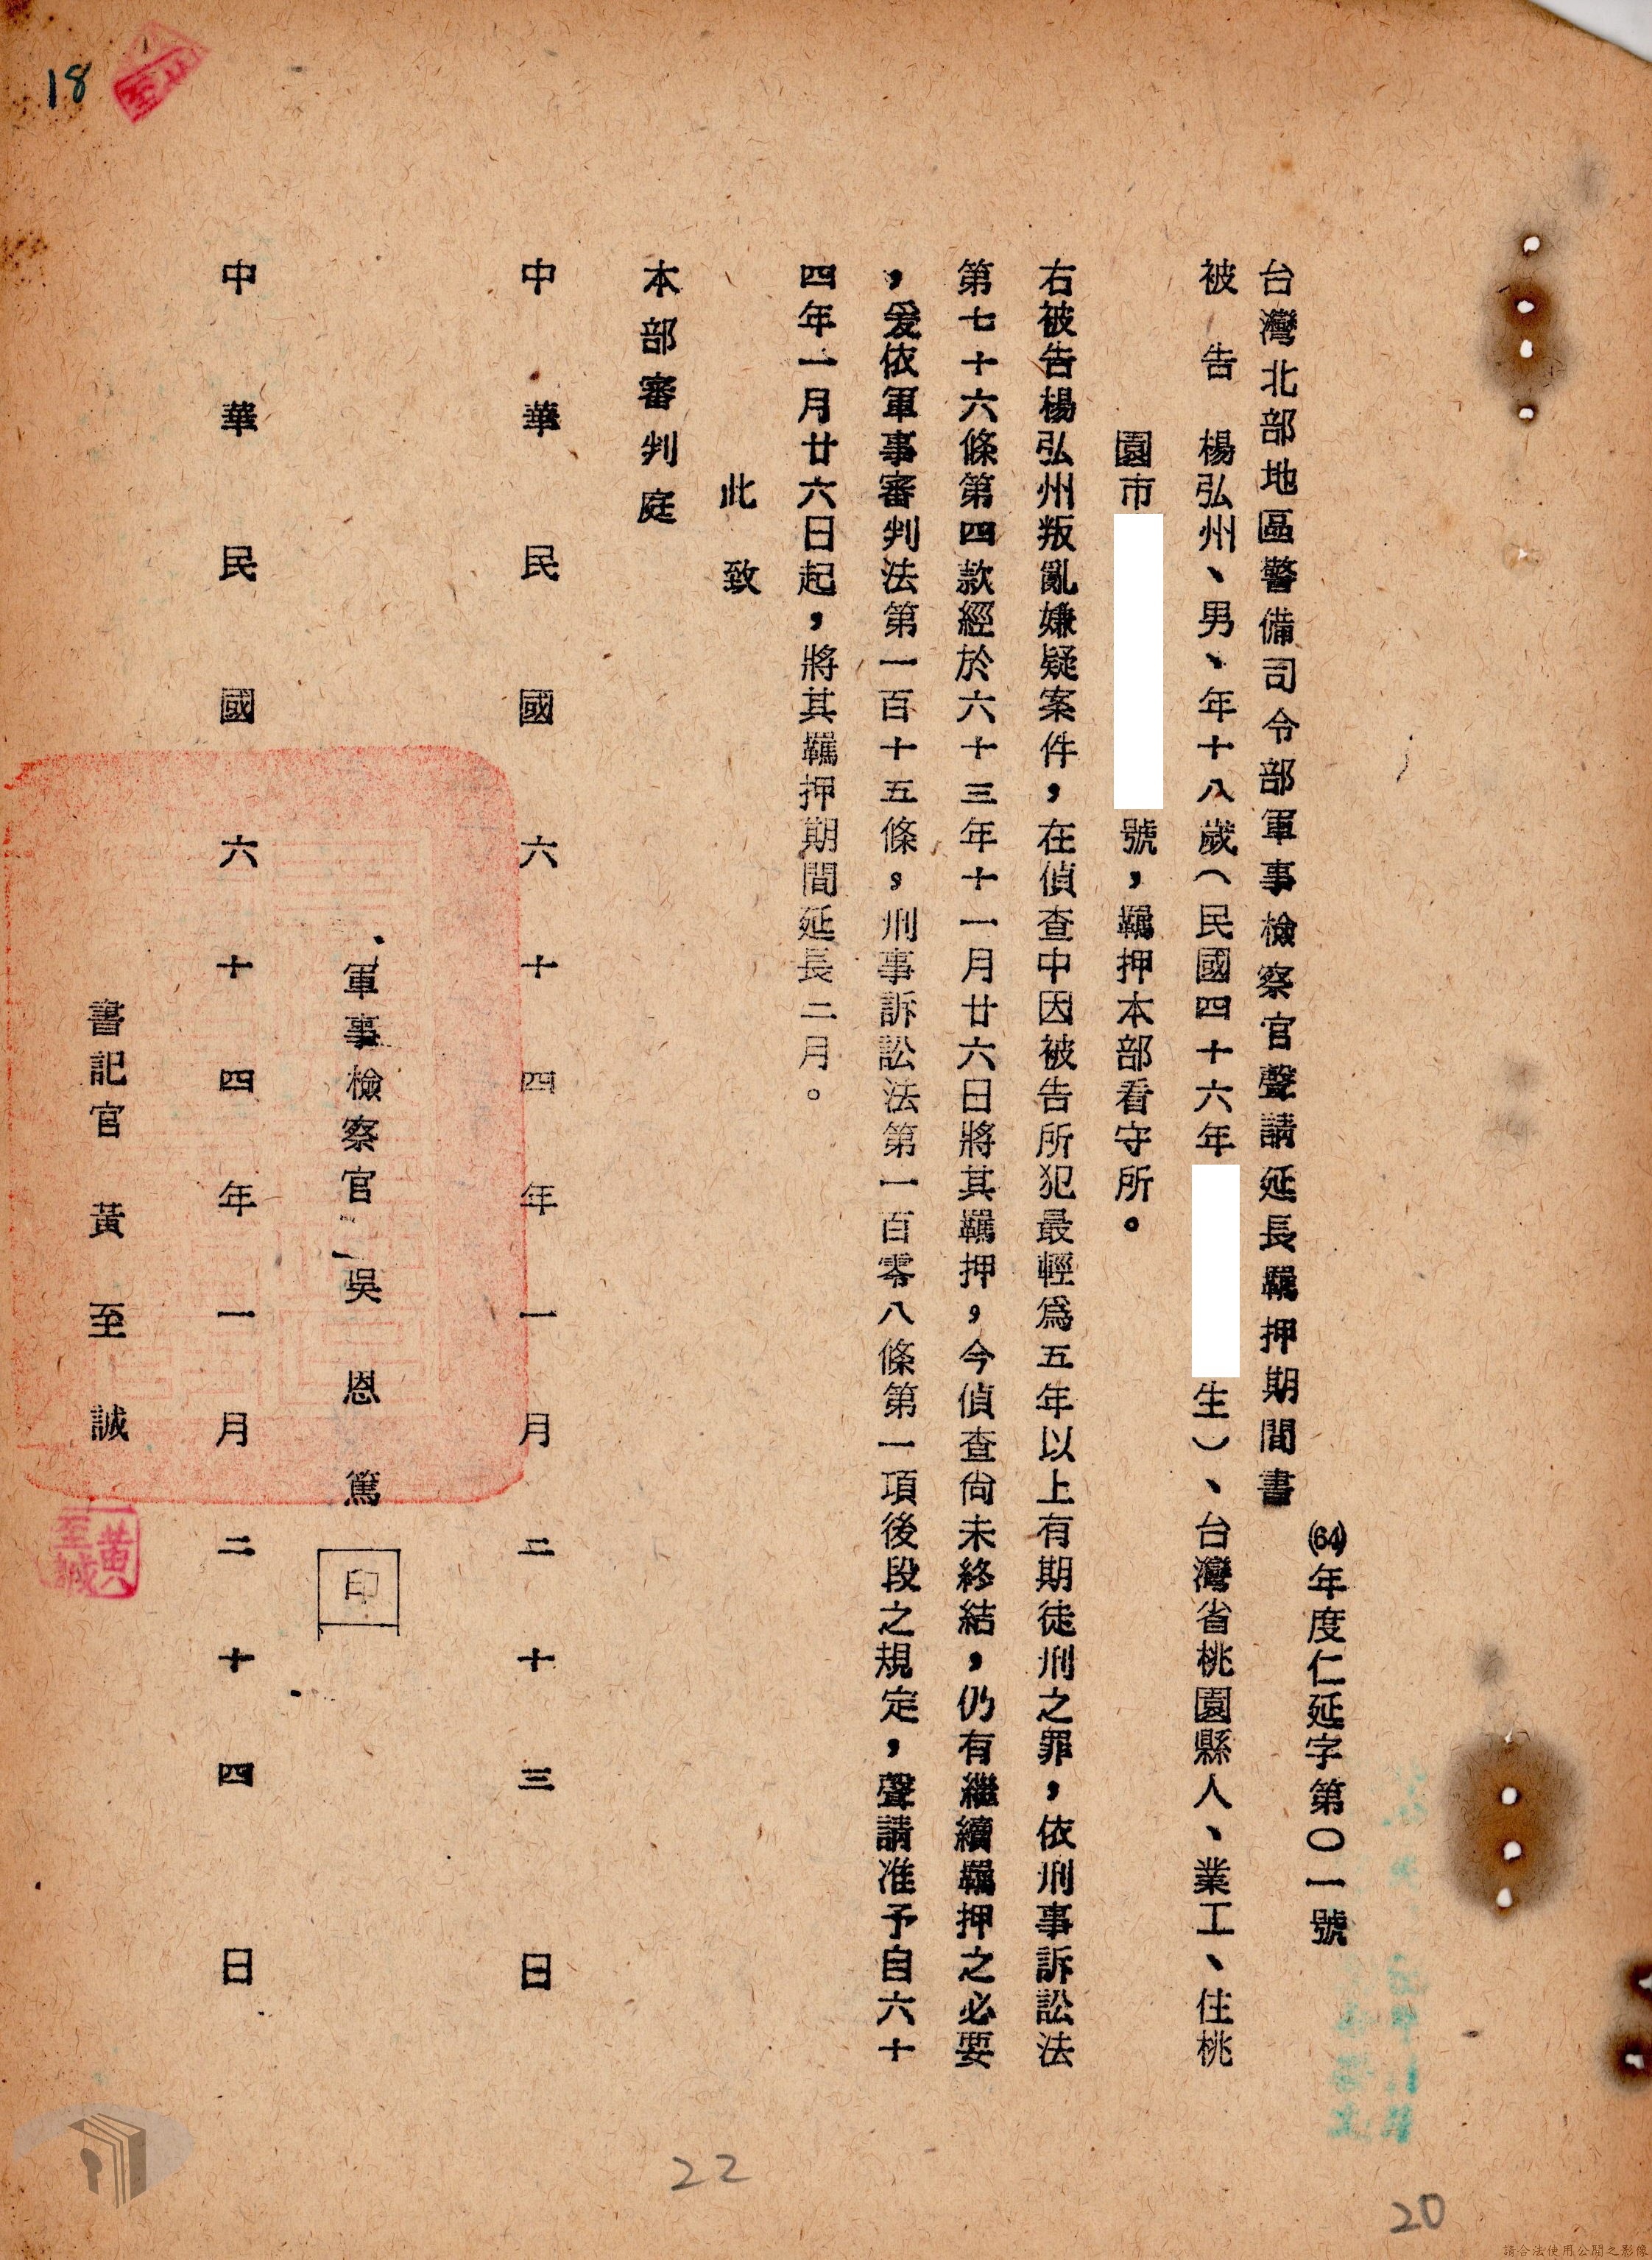 (64)年度仁延字第〇一號
台灣北部地區警備司令部軍事檢察官聲請延長羈押期間書
被告　楊弘州、男、年十八歲（民國四十六年　　生）、台灣省桃園縣人、業工、住桃
園市　　號，羈押本部看守所。
右被告楊弘州叛亂嫌疑案件，在偵查中因被告所犯最輕爲五年以上有期徒刑之罪，依刑事訴訟法
第七十六條第四款經於六十三年十一月廿六日將其羈押，今偵查尙未終結，仍有繼續羈押之必要
，爰依軍事審判法第一百十五條，刑事訴訟法第一百零八條第一項後段之規定，聲請准予自六十
四年一月廿六日起，將其羈押期間延長二月。
此致
本部審判庭
中華民國六十四年一月二十三日
軍事檢察官　吳恩篤　印
中華民國六十四年一月二十四日
書記官　黃至誠
黃至誠
18
22
20
請合法使用公開之影像